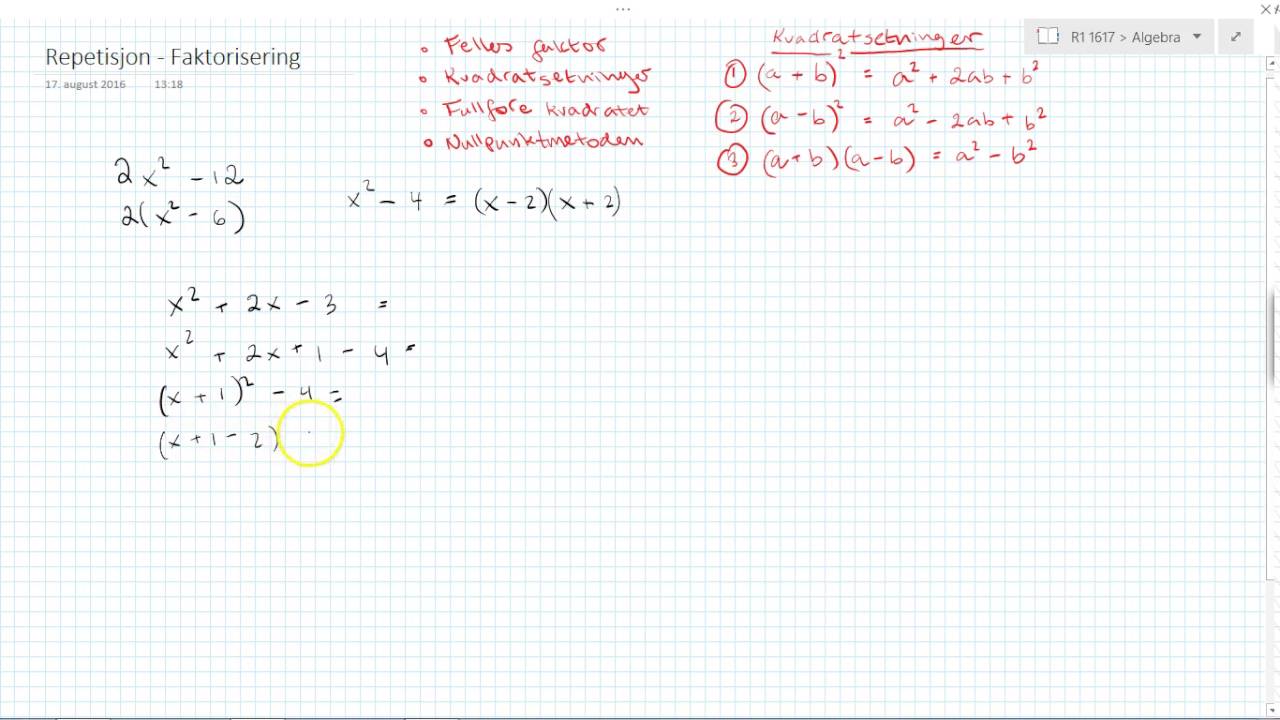 R1 1617 > Algebra
Repetisjon - Faktorisering
17. august 2016 13:18
• Felles faktor
• Kvadratsetninger
• Fullføre kvadratet
• Nullpunktmetoden
Kvadratsetninger
① (a + b)² = a² + 2ab + b²
② (a - b)² = a² - 2ab + b²
③ (a + b)(a - b) = a² - b²
2x² - 12
2(x² - 6)
x² - 4 = (x - 2)(x + 2)
x² + 2x - 3 =
x² + 2x + 1 - 4 =
(x + 1)² - 4 =
(x + 1 - 2)